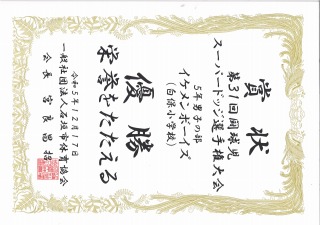 賞状
第31回圏域児
スーパードッジ選手権大会
5年男子の部
イケメンボーイズ
(白保小学校)
優勝
栄誉をたたえる
令和5年12月17日
一般社団法人石垣市体育協会
会長